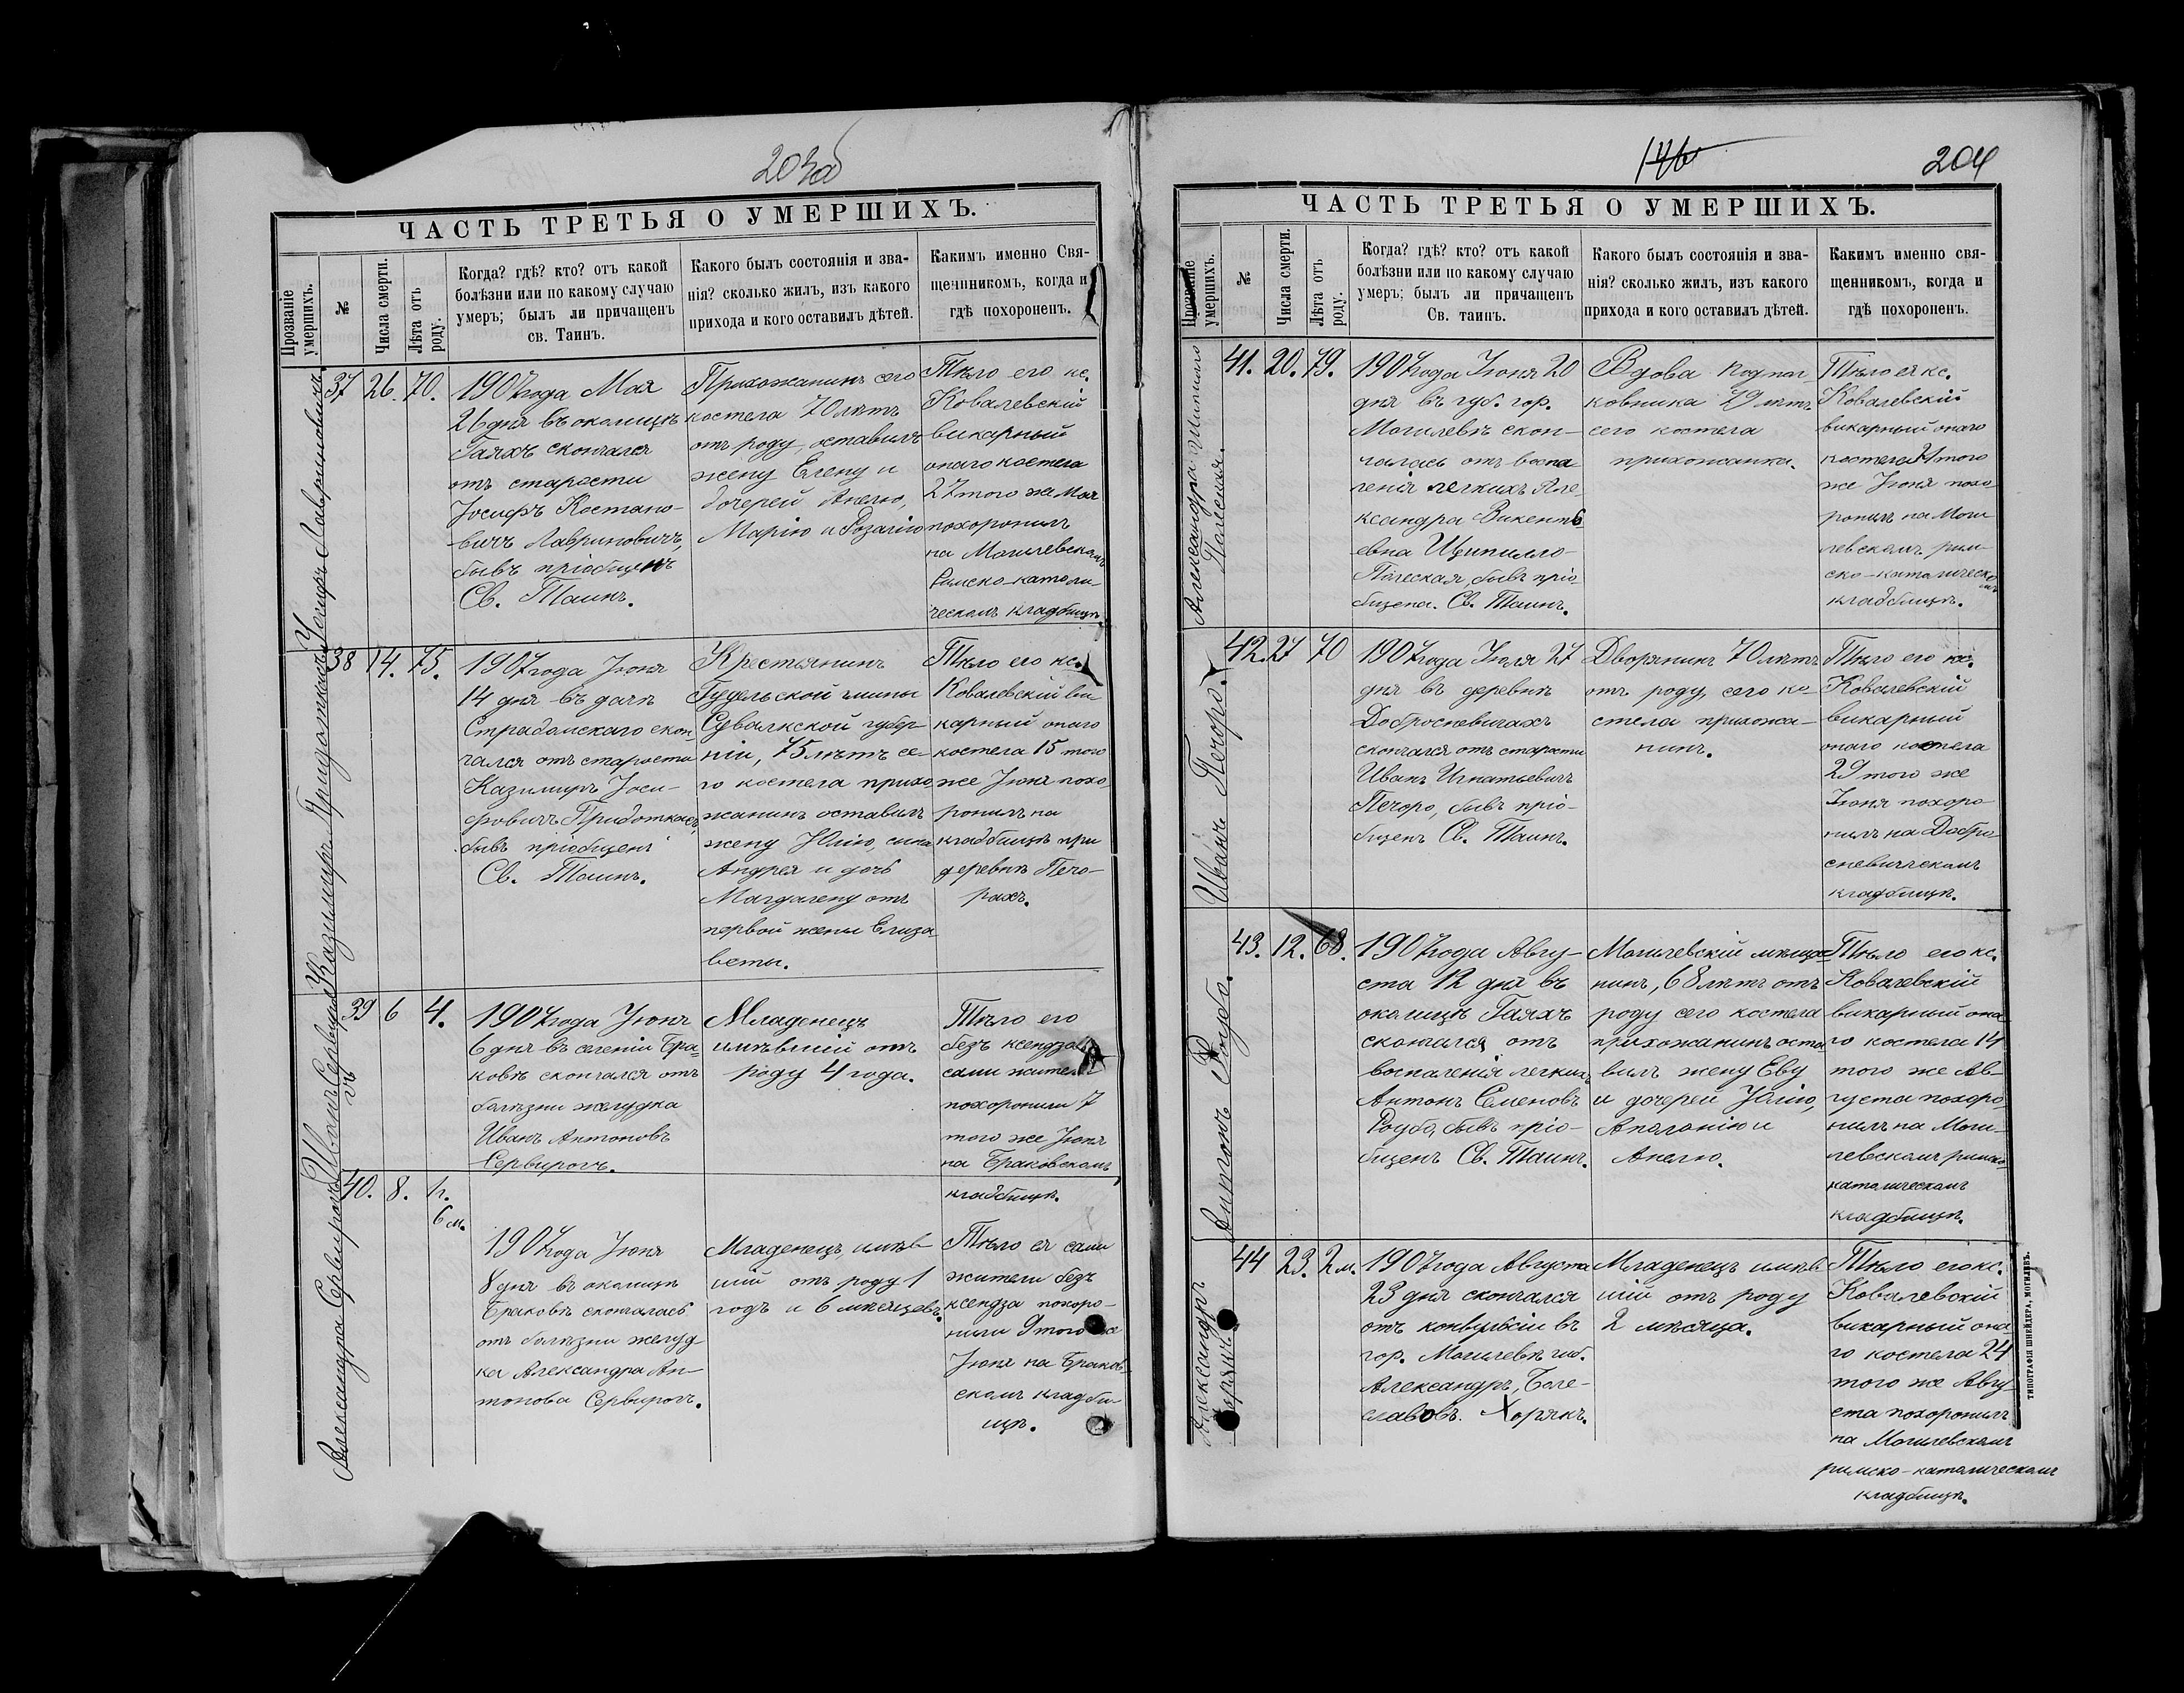 203об
ЧАСТЬ ТРЕТЬЯ О УМЕРШИХЪ.
Прозваніе умершихъ.
№
Числа смерти.
Лѣта отъ роду.
Когда? гдѣ? кто? отъ какой
болѣзни или по какому случаю
умеръ; былъ ли причащенъ
св. Таинъ.
Какого былъ состоянія и зва-
нія? сколько жилъ, изъ какого
прихода и кого оставилъ дѣтей.
Каким­ъ именно Свя-
щенникомъ, когда и
гдѣ похороненъ.
Іосифъ Лавриновичъ.
37
26.
70.
1907 года Мая
26 дня въ околицѣ
Гаяхъ скончался
отъ старости
Іосифъ Костано-
вичъ Лавриновичъ,
бывъ пріобщенъ
Св. Таинъ.
Прихожанинъ сего
костела 70 лѣтъ
отъ роду, оставилъ
жену Елену и
дочерей Анелю,
Марію и Розалію
Тѣло его кс.
Ковалевскій
викарный
онаго костела
27 того же Мая
похоронилъ
на Могилевскомъ
Римско-католи-
ческомъ кладбищѣ.
Казимиръ Придоткасъ
38
14.
75.
1907 года Іюня
14 дня въ дачѣ
Страдомскаго скон-
чался отъ старости
Казимиръ Іоси-
фовичъ Придоткасъ,
бывъ пріобщенъ
Св. Таинъ.
Крестьянинъ
Гудельской гмины
Сувалкской губер-
ніи, 75 лѣтъ се-
го костела прихо-
жанинъ оставилъ
жену Юлію, сына
Андрея и дочь
Магдалену отъ
первой жены Елиза-
веты.
Тѣло его кс.
Ковалевскій ви-
карный онаго
костела 15 того
же Іюня похо-
ронилъ на
кладбищѣ при
деревнѣ Печо-
рахъ.
Иванъ Сервирогъ
39
6
4.
1907 года Іюня
6 дня въ селеніи Бра-
ковѣ скончался отъ
болѣзни желудка
Иванъ Антоновъ
Сервирогъ.
Младенецъ
имѣвшій отъ
роду 4 года.
Тѣло его
безъ ксендза
сами жители
похоронили 7
того же Іюня
на Браковскомъ
кладбищѣ.
Александра Сервирогъ
40.
8.
1 г.
6 м.
1907 года Іюня
8 дня въ околицѣ
Браковѣ скончалась
отъ болѣзни желуд-
ка Александра Ан-
тонова Сервирогъ.
Младенецъ, имѣв-
шій отъ роду 1
годъ и 6 мѣсяцевъ.
Тѣло ея сами
жители безъ
ксендза похоро-
нили 9 того же
Іюня на Браков-
скомъ кладби-
щѣ.
146
204
ЧАСТЬ ТРЕТЬЯ О УМЕРШИХЪ.
Прозваніе умершихъ.
№
Числа смерти.
Лѣта отъ роду.
Когда? гдѣ? кто? отъ какой
болѣзни или по какому случаю
умеръ; былъ ли причащенъ
Св. таинъ.
Какого былъ состоянія и зва-
нія? сколько жилъ, изъ какого
прихода и кого оставилъ дѣтей.
Какимъ именно свя-
щенникомъ, когда и
гдѣ похороненъ.
Александра Щипилло
Палеская.
41.
20.
79.
1907 года Іюня 20
дня въ губ. гор.
Могилевѣ скон-
чалась отъ воспа-
ленія легкихъ Але-
ксандра Викенть-
евна Щипилло-
Палеская, бывъ пріо-
бщена. Св. Таинъ.
Вдова Подпол-
ковника 79 лѣтъ
сего костела
прихожанка.
Тѣло ея кс.
Ковалевскій
викарный онаго
костела 21 того
же Іюня похо-
ронилъ на Моги-
левскомъ рим-
ско-католическомъ
кладбищѣ.
Иванъ Печоро.
42.
27
70
1907 года Іюля 27
дня въ деревнѣ
Добросневичахъ
скончался отъ старости
Иванъ Игнатьевичъ
Печоро, бывъ пріо-
бщенъ Св. Таинъ.
Дворянинъ 70 лѣтъ
отъ роду, сего ко-
стела прихожа-
нинъ.
Тѣло его кс.
Ковалевскій
викарный
онаго костела
29 того же
Іюня похоро-
нилъ на Добро-
сневичскомъ
кладбищѣ.
Антонъ Роубо.
43.
12.
68.
1907 года Авгу-
ста 12 дня въ
околицѣ Гаяхъ
скончался отъ
воспаленія легкихъ
Антонъ Семеновъ
Роубо, бывъ пріо-
бщенъ Св. Таинъ.
Могилевскій мѣща-
нинъ, 68 лѣтъ отъ
роду сего костела
прихожанинъ оста-
вилъ жену Еву
и дочерей Юлію,
Аполонію и
Анелю.
Тѣло его кс.
Ковалевскій
викарный она-
го костела 14
того же Ав-
густа похоро-
нилъ на Моги-
левскомъ римско-
католическомъ
кладбищѣ.
Александръ
44
23.
2 м.
1907 года Августа
23 дня скончался
отъ конвульсіи въ
гор. Могилевѣ губ.
Александръ, Боле-
славовъ. Хорякъ.
Младенецъ имѣв-
шій отъ роду
2 мѣсяца.
Тѣло его кс.
Ковалевскій
викарный она-
го костела 24
того же Авгу-
ста похоронилъ
на Могилевскомъ
римско-католическомъ
кладбищѣ.
ТИПОГРАФІЯ ШНЕЙДЕРА, МОГИЛЕВЪ.